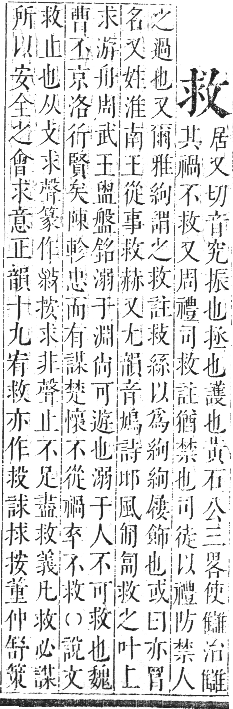 救
居又切音究振也拯也護也黃石公三畧使讎治讎
其禍不救又周禮司救註猶禁也司徒以禮防禁人
之過也又爾雅絇謂之救註救絲以爲絇絇僂飾也或曰亦罥
名又姓淮南王從事救赫又尤韻音鳩詩邶風匍匐救之叶上
求游舟周武王盥盤銘溺于淵尚可遊也溺于人不可救也魏
曹丕京洛行賢矣陳軫忠而有謀楚懷不從禍卒不救〇說文
救止也从攴求聲篆作按求非聲止不足盡救義凡救必謀
所以安全之會求意正韻十九宥救亦作誎捄按董仲舒策